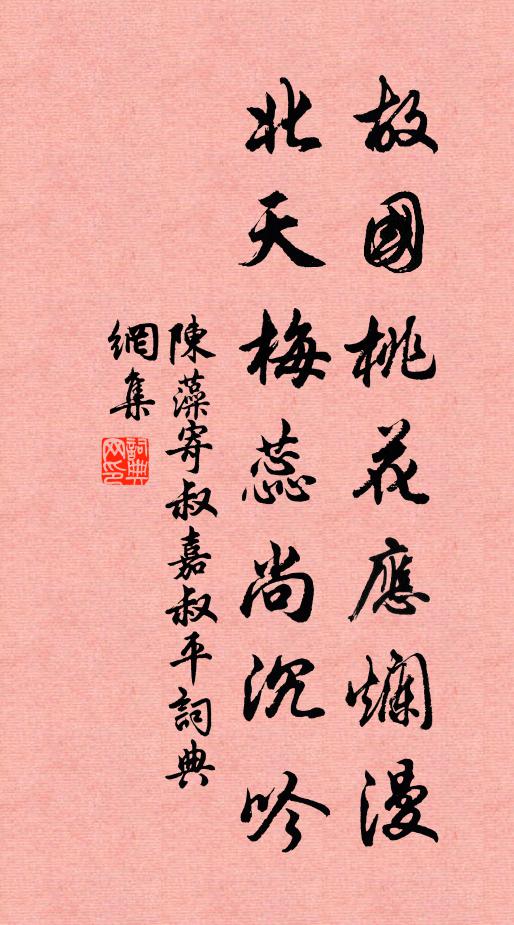 故國桃花應爛漫
北天梅蕊尚沉吟
陳藻寄叔嘉叔平詞典
網集
詞典網印